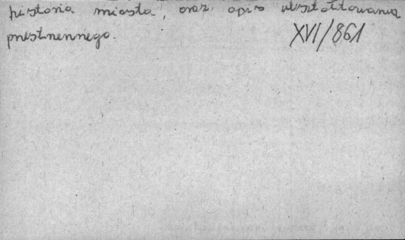 historia miasta, oraz opis ukształtowania
przestrzennego.
XVI/861